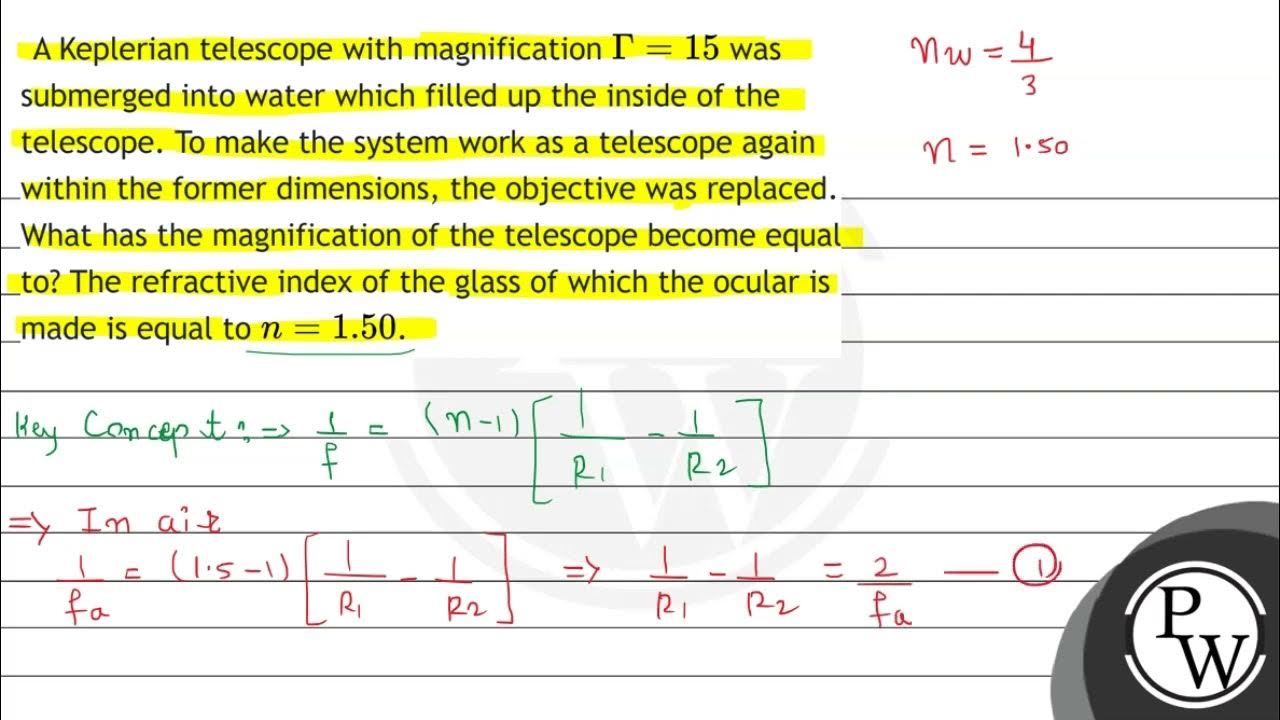 A Keplerian telescope with magnification Γ = 15 was
submerged into water which filled up the inside of the
telescope. To make the system work as a telescope again
within the former dimensions, the objective was replaced.
What has the magnification of the telescope become equal
to? The refractive index of the glass of which the ocular is
made is equal to n = 1.50.
nw = 4/3
n = 1.50
Key Concept :⇒ 1/f = (n-1) [1/R1 - 1/R2]
⇒ In air
1/fa = (1.5-1) [1/R1 - 1/R2] ⇒ 1/R1 - 1/R2 = 2/fa — ①
P
W
W